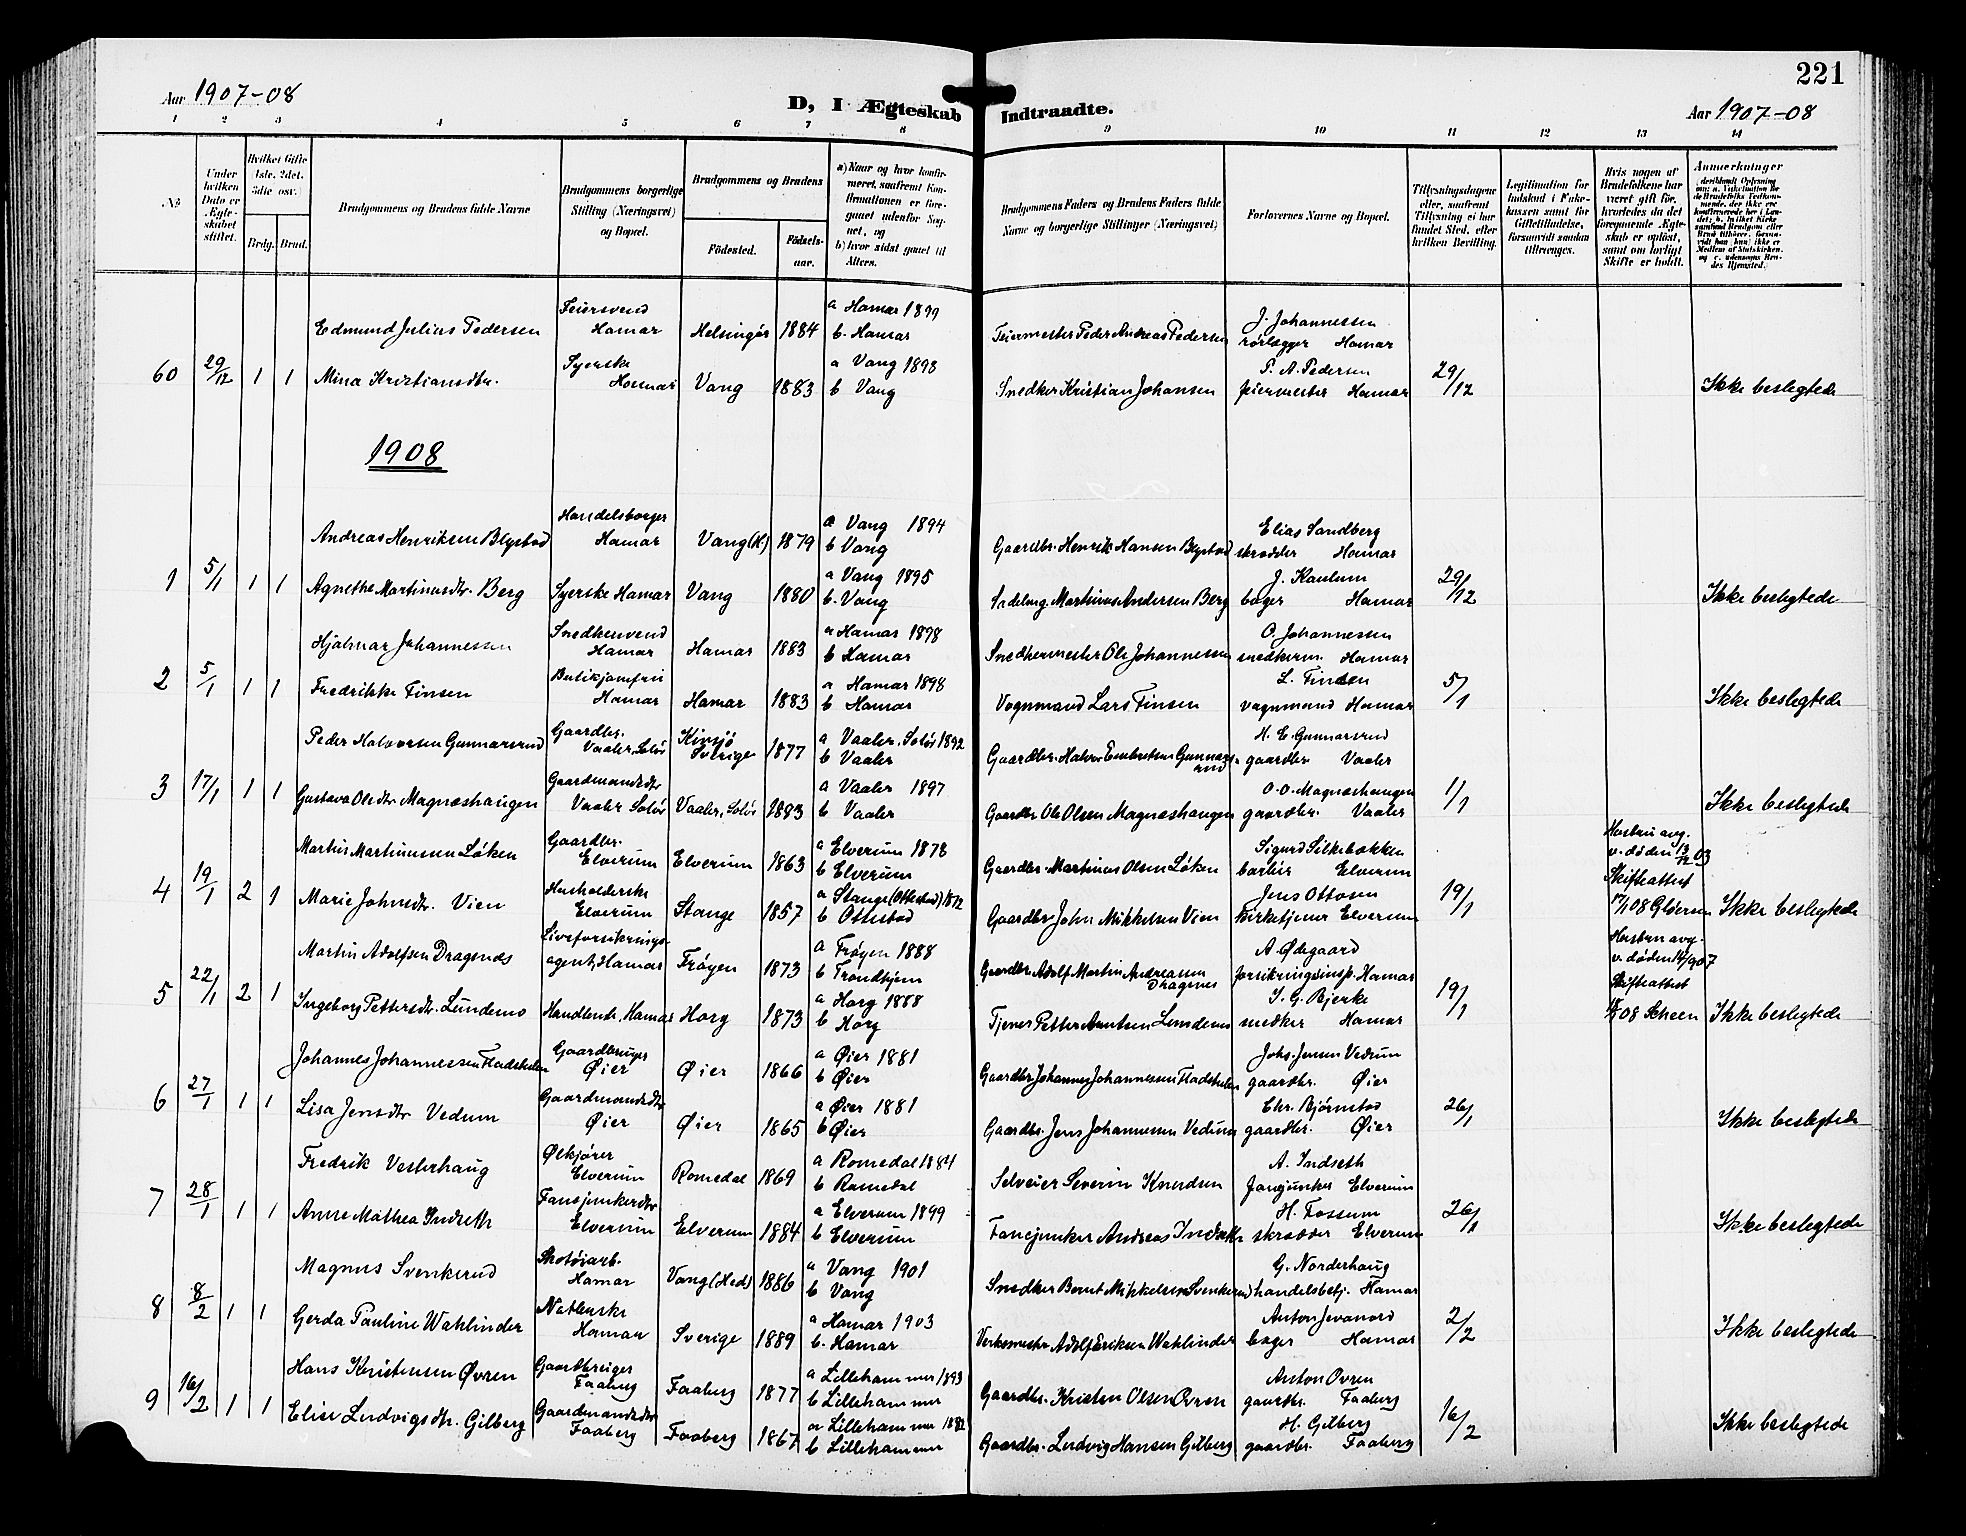 221
Aar 1907-08
D, I Ægteskab Indtraadte.
Aar 1907-08
1 2 3 4 5 6 7 8 9 10 11 12 13 14
No
Under hvilken Dato er Ægteskabet stiftet.
Hvilket Gifte 1ste, 2det, 3die osv.
Brdg. Brud.
Brudgommens og Brudens fulde Navne
Brudgommens borgerlige Stilling (Næringsvei) og Bopæl.
Brudgommens og Brudens
Fødested.
Fødselsaar.
a) Naar og hvor konfirmeret, saafremt Konfirmationen er foregaaet udenfor Sognet, og
b) hvor sidst gaaet til Alters.
Brudgommens Faders og Brudens Faders fulde Navne og borgerlige Stillinger (Næringsvei)
Forlovernes Navne og Bopæl.
Tillysningsdagene eller, saafremt Tillysning ei har fundet Sted, efter hvilken Bevilling.
Legitimation for Indskud i Enkekassen samt for Giftetilladelse, forsaavidt saadan tiltrænges.
Hvis nogen af Brudefolkene har været gift før, hvorledes da det foregaaende Ægteskab er opløst, samt om lovligt Skifte er holdt.
Anmærkninger
Edmund Julius Pedersen Feiersvend Hamar Helsingør 1884 a Hamar 1899 b. Hamar Feiermester Peder Andreas Pedersen J. Johannessen rørlægger Hamar
60 29/12 1 1 Mina Kristiansdtr. Syerske Hamar Vang 1883 a Vang 1898 b Vang Snedker Kristian Johansen P. A. Pedersen feiermester Hamar 29/12 Ikke beslegtede
1908
Andreas Henriksen Blystad Handelsborger Hamar Vang (H) 1879 a Vang 1894 b Vang Gaardbr. Henrik Hansen Blystad Elias Sandberg skrædder Hamar
1 5/1 1 1 Agnethe Martinusdtr. Berg Syerske Hamar Vang 1880 a Vang 1895 b. Vang Sadelmg. Martinus Andersen Berg J. Kaulum bager Hamar 29/12 Ikke beslegtede
Hjalmar Johannessen Snedkersvend Hamar Hamar 1883 a Hamar 1898 b Hamar Snedkermester Ole Johannessen O. Johannessen snedkerm. Hamar
2 5/1 1 1 Fredrikke Finsen Butikjomfru Hamar Hamar 1883 a Hamar 1898 b Hamar Vognmand Lars Finsen L. Finsen vognmand Hamar 5/1 Ikke beslegtede
Peder Halvorsen Gunnarsrud Gaardbr. Vaaler, Solør Sverige 1877 a Vaaler, Solør 1892 b Vaaler Gaardbr. Halvor Embretsen Gunnarsrud H. E. Gunnarsrud gaardbr. Vaaler
3 17/1 1 1 Gustava Olsdtr Magnæshaugen Gaardmandsdtr Vaaler Solør Vaaler, Solør 1883 a Vaaler 1897 b Vaaler Gaardbr Ole Olsen Magnæshaugen O. O. Magnæshaugen gaardbr. Vaaler 1/1 Ikke beslegtede
Martin Martinusen Løken Gaardbr. Elverum Elverum 1863 a Elverum 1878 b Elverum Gaardbr. Martinus Olsen Løken Sigurd Silkebækken Elverum Hustru avg. v. døden 13/12 03
4 19/1 2 1 Marie Johnsdtr. Vien Husholderske Elverum Stange 1857 a Stange (Ottestad) 1872 b Ottestad Gaardbr John Mikkelsen Vien Jens Ottosen Kirketjener Elverum 19/1 Skifteattest 17/1 08 Ikke beslegtede
Martin Adolfsen Dragenes Livsforsikringsagent, Hamar Frøyen 1873 a Frøyen 1888 b Trondhjem Gaardbr Adolf Martin Andreassen Dragenes A. Ødegaard forsikringsinsp. Hamar Hustru avg. v. døden 907
5 22/1 2 1 Ingeborg Pettersdtr. Lundemo Handlende, Hamar Horg 1873 a Horg 1888 b Horg Tjener Petter Arntsen Lundemo J. G. Bjerke snedker Hamar 19/1 Skifteattest 08 Scheen Ikke beslegtede
Johannes Johannessen Gaardbruger Øier Øier 1866 a Øier 1881 b Øier Gaardbr Johannes Johannessen Johs. Jensen Vedum gaardbr. Øier
6 27/1 1 1 Lisa Jensdtr Vedum Gaardmandsdtr Øier Øier 1865 a Øier 1881 b Øier Gaardbr. Jens Johannessen Vedum Chr. Bjørnstad gaardbr. Øier 26/1 Ikke beslegtede
Fredrik Vesterhaug Ølkjører Elverum Romedal 1869 a Romedal 1884 b Romedal Selveier Severin Knudsen A. Indseth fanejunker Elverum
7 28/1 1 1 Anne Mathea Indseth Fanejunkerdtr Elverum Elverum 1884 a Elverum 1899 b Elverum Fanejunker Andreas Indseth H. Fossum skrædder Elverum 26/1 Ikke beslegtede
Magnus Svenkerud Skotøiarb. Hamar Vang (Hed.) 1886 a Vang 1901 b Vang Snedker Bernt Mikkelsen Svenkerud G. Norderhaug handelsbetj. Hamar
8 8/2 1 1 Gerda Pauline Wahlinder Hamar Sverige 1889 a Hamar 1903 b. Hamar Verksmestr Adolf Eriksen Wahlinder Anton Jevanord bager Hamar 2/2 Ikke beslegtede
Hans Kristensen Øvren Gaardbruger Faaberg Faaberg 1877 a Lillehammer 1893 b Lillehammer Gaardbr. Kristen Olsen Øvren Anton Øvren gaardbr. Faaberg
9 16/2 1 1 Elise Ludvigsdtr. Gilberg Gaardmandsdtr Faaberg Faaberg 1867 a Lillehammer 1882 b Lillehammer Gaardbr. Ludvig Hansen Gilberg H. Gilberg gaardbr. Faaberg 16/2 Ikke beslegtede